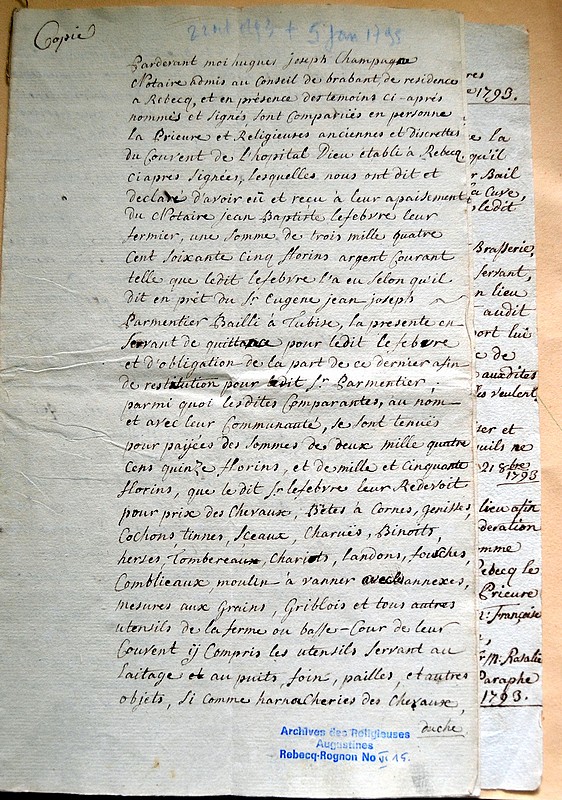 Copie
22 oct 1793 + 5 jan 1795
Parderant moi hugues joseph Champagne
Notaire admis au Conseil de brabant de residence
a Rebecq, et en présence des temoins ci-après
nommés et signés, sont comparuës en personne
la Prieure et Religieuses anciennes et discrettes
du Couvent de l'hopital Dieu etabli à Rebecq
ci apres signées, lesquelles nous ont dit et
declaré d'avoir eü et recu à leur apaisement
du Notaire jean Baptiste lefebvre leur
fermier, une somme de trois mille quatre
Cent soixante cinq florins argent Courant
telle que ledit lefebvre l'a eu selon qu'il
dit en prêt du Sr Eugene jean joseph
Parmentier Bailli à Tubise, la presente en
servant de quittance pour ledit lefebvre
et d'obligation de la part de ce dernier afin
de restitution pour ledit Sr Parmentier.
parmi quoi les dites Comparantes, au nom
et avec leur Communauté, se sont tenuës
pour paijées des sommes de deux mille quatre
Cens quinze florins, et de mille et cinquante
florins, que le dit Sr lefebvre leur Redevoit
pour prix des Chevaux, Bêtes à Cornes, genisses,
Cochons, tinnes, Sceaux, Charuës, Binoits,
herses, Tombereaux, Chariots, landons, fouches,
Comblieaux, moulin à vanner avec annexes,
mesures aux Grains, Griblois et tous autres
utensils de la ferme ou basse-Cour de leur
Couvent ij Compris les utensils servant au
laitage et au puits, foin, pailles, et autres
objets, si comme harnacheries des Chevaux,
duche
Archives des Religieuses
Augustines
Rebecq-Rognon No VI 15.
1793.
la
qu'il
Bail
la Cuve,
ledit
Brasserie,
servant,
lieu
audit
lui
de
auxdites
veulent,
et
ne
21 8bre
1793
lieu afin
deration
omme
Rebecq le
Prieure
Françoise
Rosalie
Paraphe
1793.